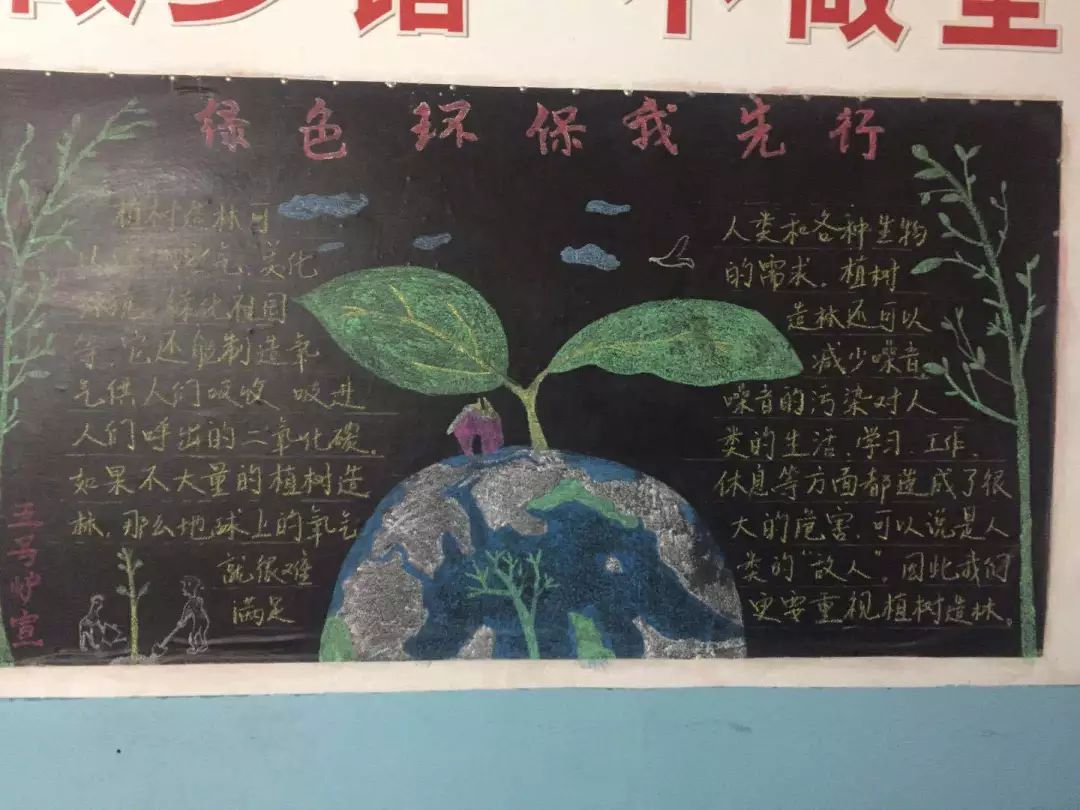 绿色环保我先行
植树造林可
以 空气、美化
绿化祖国
等。它还能制造氧
气供人们吸收 吸进
人们呼出的二氧化碳。
如果不大量的植树造
林，那么地球上的氧气
就很难
满足
人类和各种生物
的需求，植树
造林还可以
减少噪音。
噪音的污染对人
类的生活、学习、工作、
休息等方面都造成了很
大的危害，可以说是人
类的“故人”，因此我们
更要重视植树造林。
号炉宣